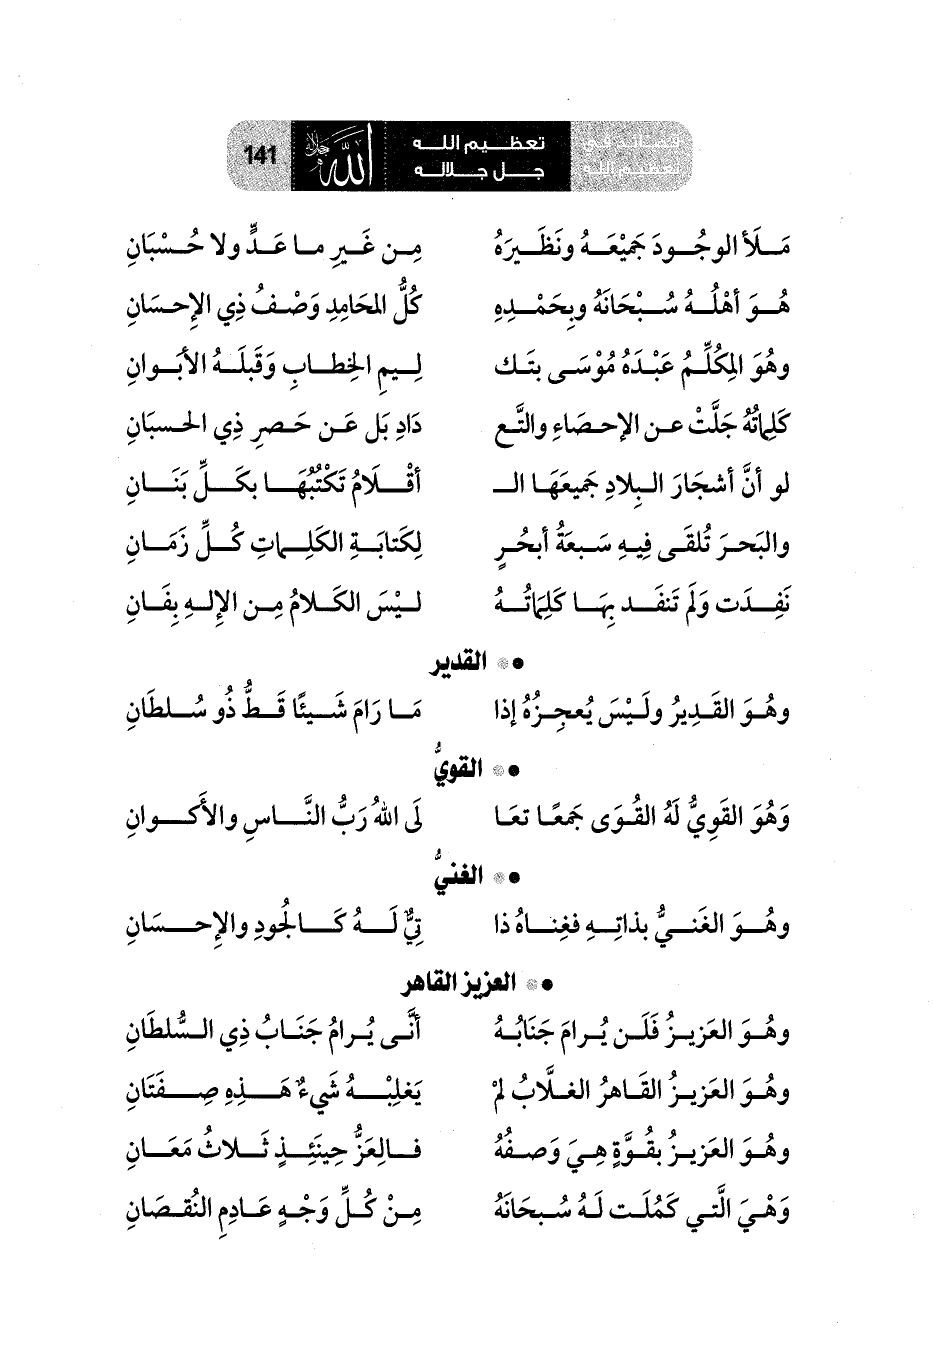 قصائد في تعظيم الله
تعظيم الله جل جلاله
الله جل جلاله
141
مَلَأ الوجُودَ جَمِيْعَهُ ونَظَيرَهُ مِن غَيرِ ما عَدٍّ ولا حُسْبَانِ
هُوَ أهْلُهُ سُبْحَانَهُ وبِحَمْدِهِ كُلُّ المَحَامِدِ وَصْفُ ذِي الإحسَانِ
وهُوَ المكُلِّمُ عَبْدَهُ مُوْسَى بتَك لِيمِ الخِطابِ وَقَبلَهُ الأبَوانِ
كَلِماتُهُ جَلَّتْ عن الإحصَاءِ والتَّع دَادِ بَل عَن حَصرِ ذِي الحسبَانِ
لو أنَّ أشجَارَ البِلادِ جَميعَهَا الـ أقْلَامُ تَكْتُبُهَا بكَلِّ بَنَانِ
والبَحرَ تُلقَى فِيهِ سَبعَةُ أبحُرٍ لِكَتابَةِ الكَلِماتِ كُلِّ زَمَانِ
نَفِدَت وَلَم تَنفَد بِهَا كَلِمَاتُهُ ليْسَ الكَلَامُ مِن الإلهِ بِفَانِ
القدير
وهُوَ القَدِيرُ ولَيْسَ يُعجِزُهُ إذا مَا رَامَ شَيئًا قَطُّ ذُو سُلطَانِ
القويُّ
وَهُوَ القَوِيُّ لَهُ القُوَى جَمعًا تعَا لَى اللهُ رَبُّ النَّاسِ والأَكوانِ
الغنيُّ
وهُوَ الغَنيُّ بذاتِهِ فغِناهُ ذا تِيٌّ لَهُ كَالجُودِ والإحسَانِ
العزيز القاهر
وهُوَ العَزيزُ فَلَن يُرامَ جَنَابُهُ أنَّى يُرامُ جَنَابُ ذِي السُّلطَانِ
وهُوَ العَزيزُ القَاهرُ الغلَّابُ لمْ يَغلِبْهُ شَيءٌ هَذِهِ صِفَتَانِ
وهُوَ العَزيزُ بقُوَّةٍ هِيَ وَصفُهُ فالعِزُّ حِينَئِذٍ ثَلاثُ مَعَانِ
وَهْيَ الَّتي كَمُلَت لَهُ سُبحَانَهُ مِنْ كُلِّ وَجْهٍ عَادِمِ النُقصَانِ